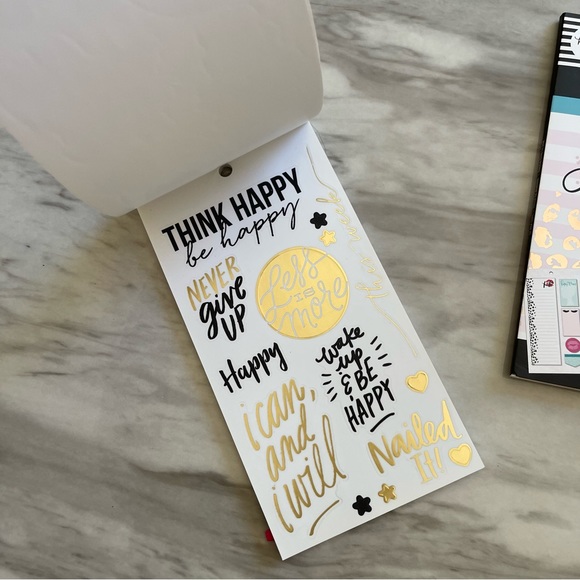 THINK HAPPY
be happy
NEVER
give
UP
Less
is
more
Happy
wake
up
& BE
HAPPY
i can,
and
i will
Nailed
It!